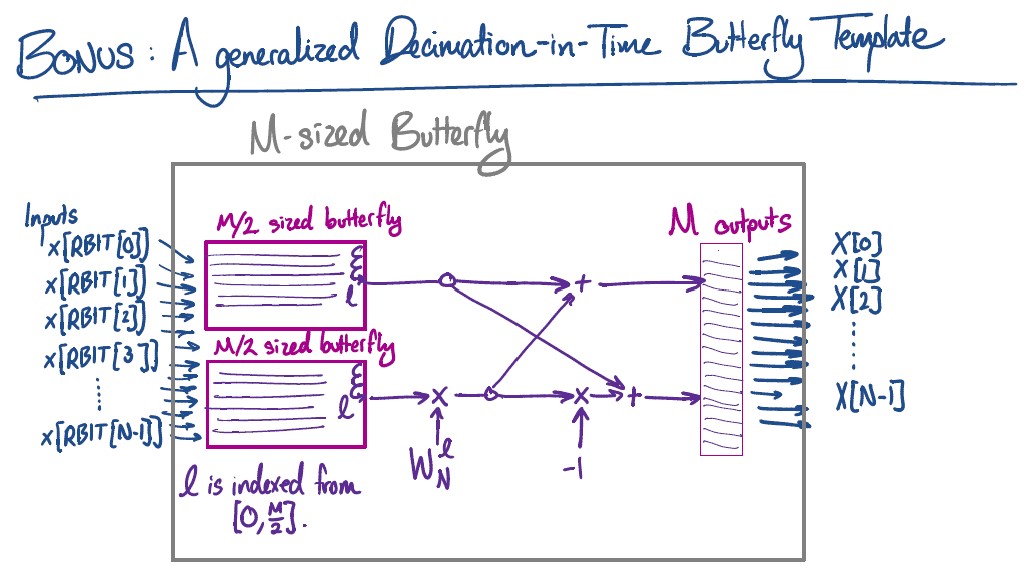 BONUS: A generalized Decimation-in-Time Butterfly Template
M-sized Butterfly
Inputs
x[RBIT[0]]
x[RBIT[1]]
x[RBIT[2]]
x[RBIT[3]]
x[RBIT[N-1]]
M/2 sized butterfly
l
M/2 sized butterfly
l
+
X
X
+
W_N^l
-1
l is indexed from
[0, M/2].
M outputs
X[0]
X[1]
X[2]
X[N-1]